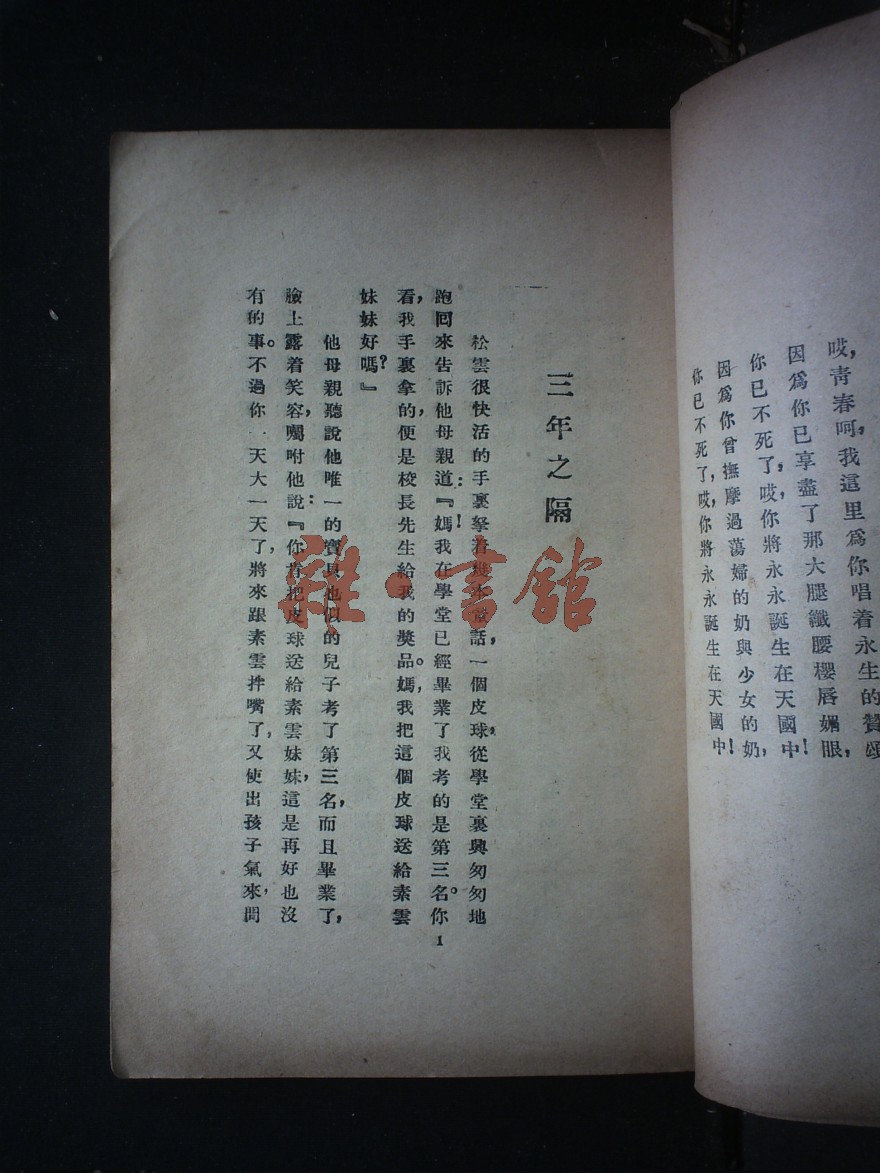 哎,青春呵,我這里爲你唱着永生的贊頌
因爲你已享盡了那大腿纖腰櫻唇媚眼,
你已不死了,哎,你將永永誕生在天國中!
因爲你曾撫摩過蕩婦的奶與少女的奶,
你已不死了,哎,你將永永誕生在天國中!
三年之隔
松雲很快活的手裏拏着幾本童話,一個皮球,從學堂裏興匆匆地
跑回來告訴他母親道:『媽!我在學堂已經畢業了我考的是第三名。你
看,我手裏拿的,便是校長先生給我的獎品。媽,我把這個皮球送給素雲
妹妹好嗎?』
他母親聽說他唯一的寶貝也似的兒子考了第三名,而且畢業了,
臉上露着笑容,囑咐他說:『你肯把皮球送給素雲妹妹,這是再好也沒
有的事。不過你一天大一天了,將來跟素雲拌嘴了,又使出孩子氣來,問
1
雜·書館